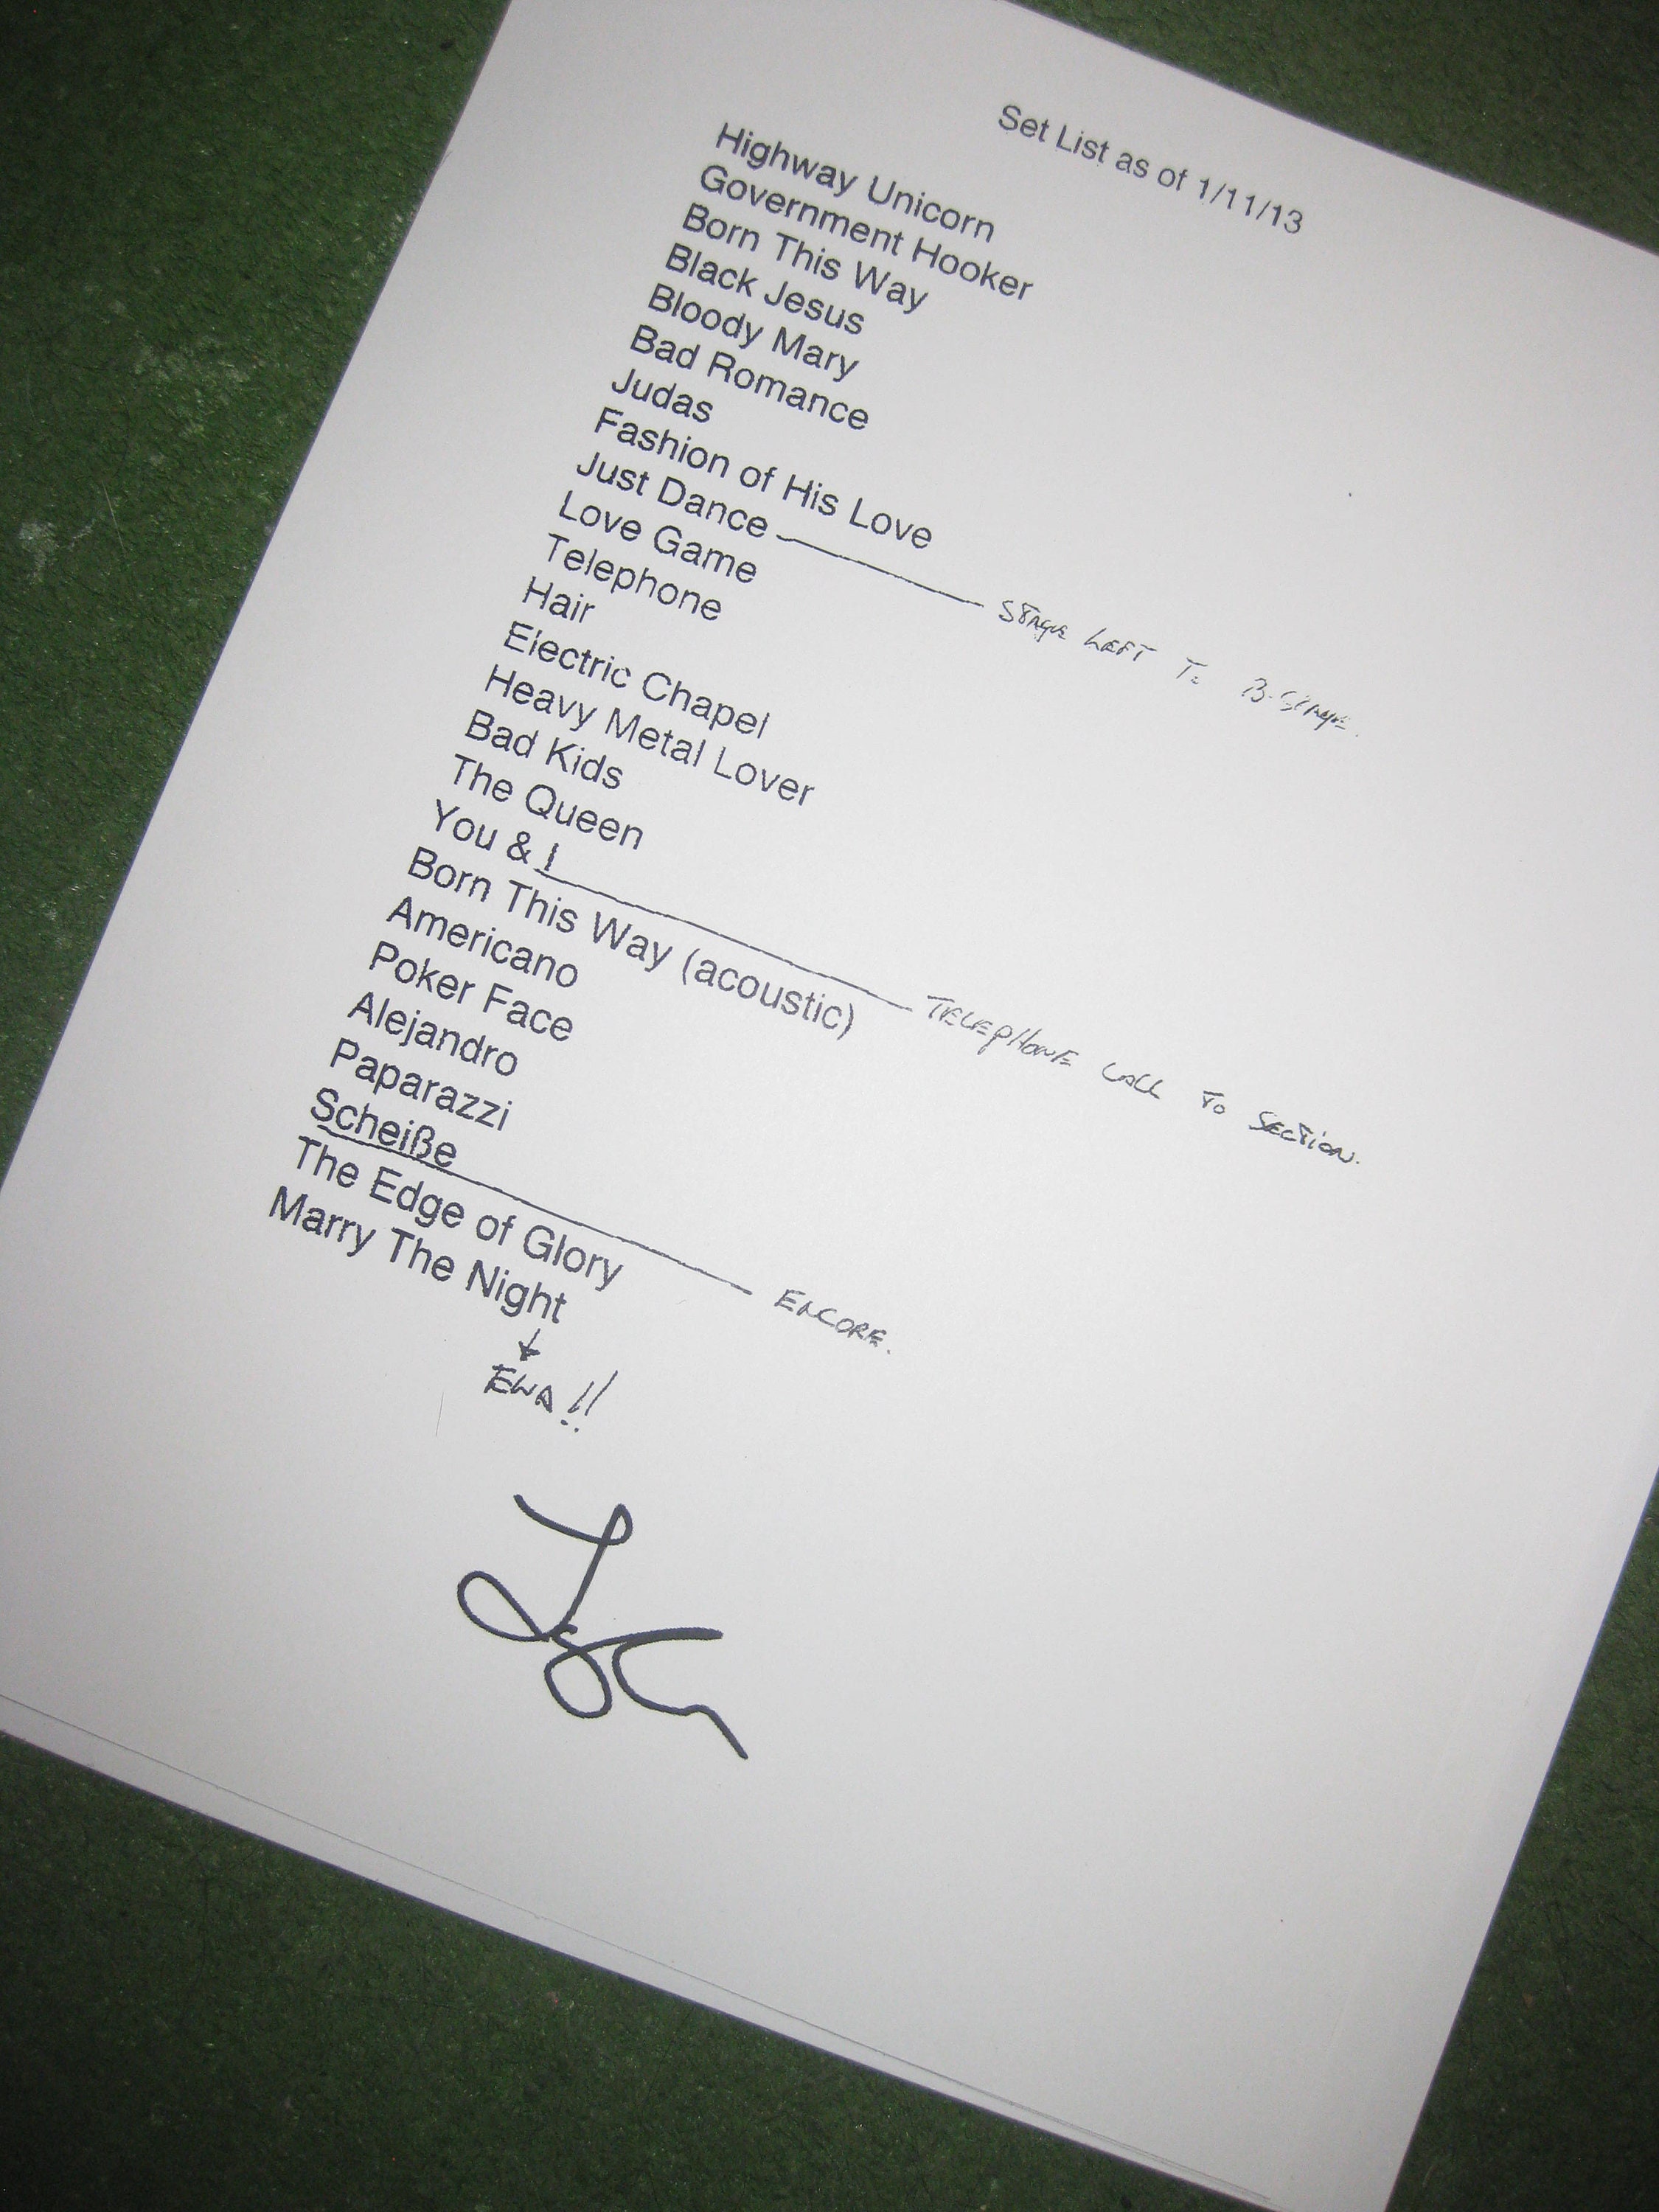 Set List as of 1/11/13
Highway Unicorn
Government Hooker
Born This Way
Black Jesus
Bloody Mary
Bad Romance
Judas
Fashion of His Love
Just Dance STAGE LEFT TO B-STAGE.
Love Game
Telephone
Hair
Electric Chapel
Heavy Metal Lover
Bad Kids
The Queen
You & I TELEPHONE CALL TO SECTION.
Born This Way (acoustic)
Americano
Poker Face
Alejandro
Paparazzi
Scheiße ENCORE.
The Edge of Glory
Marry The Night
↓
END!!